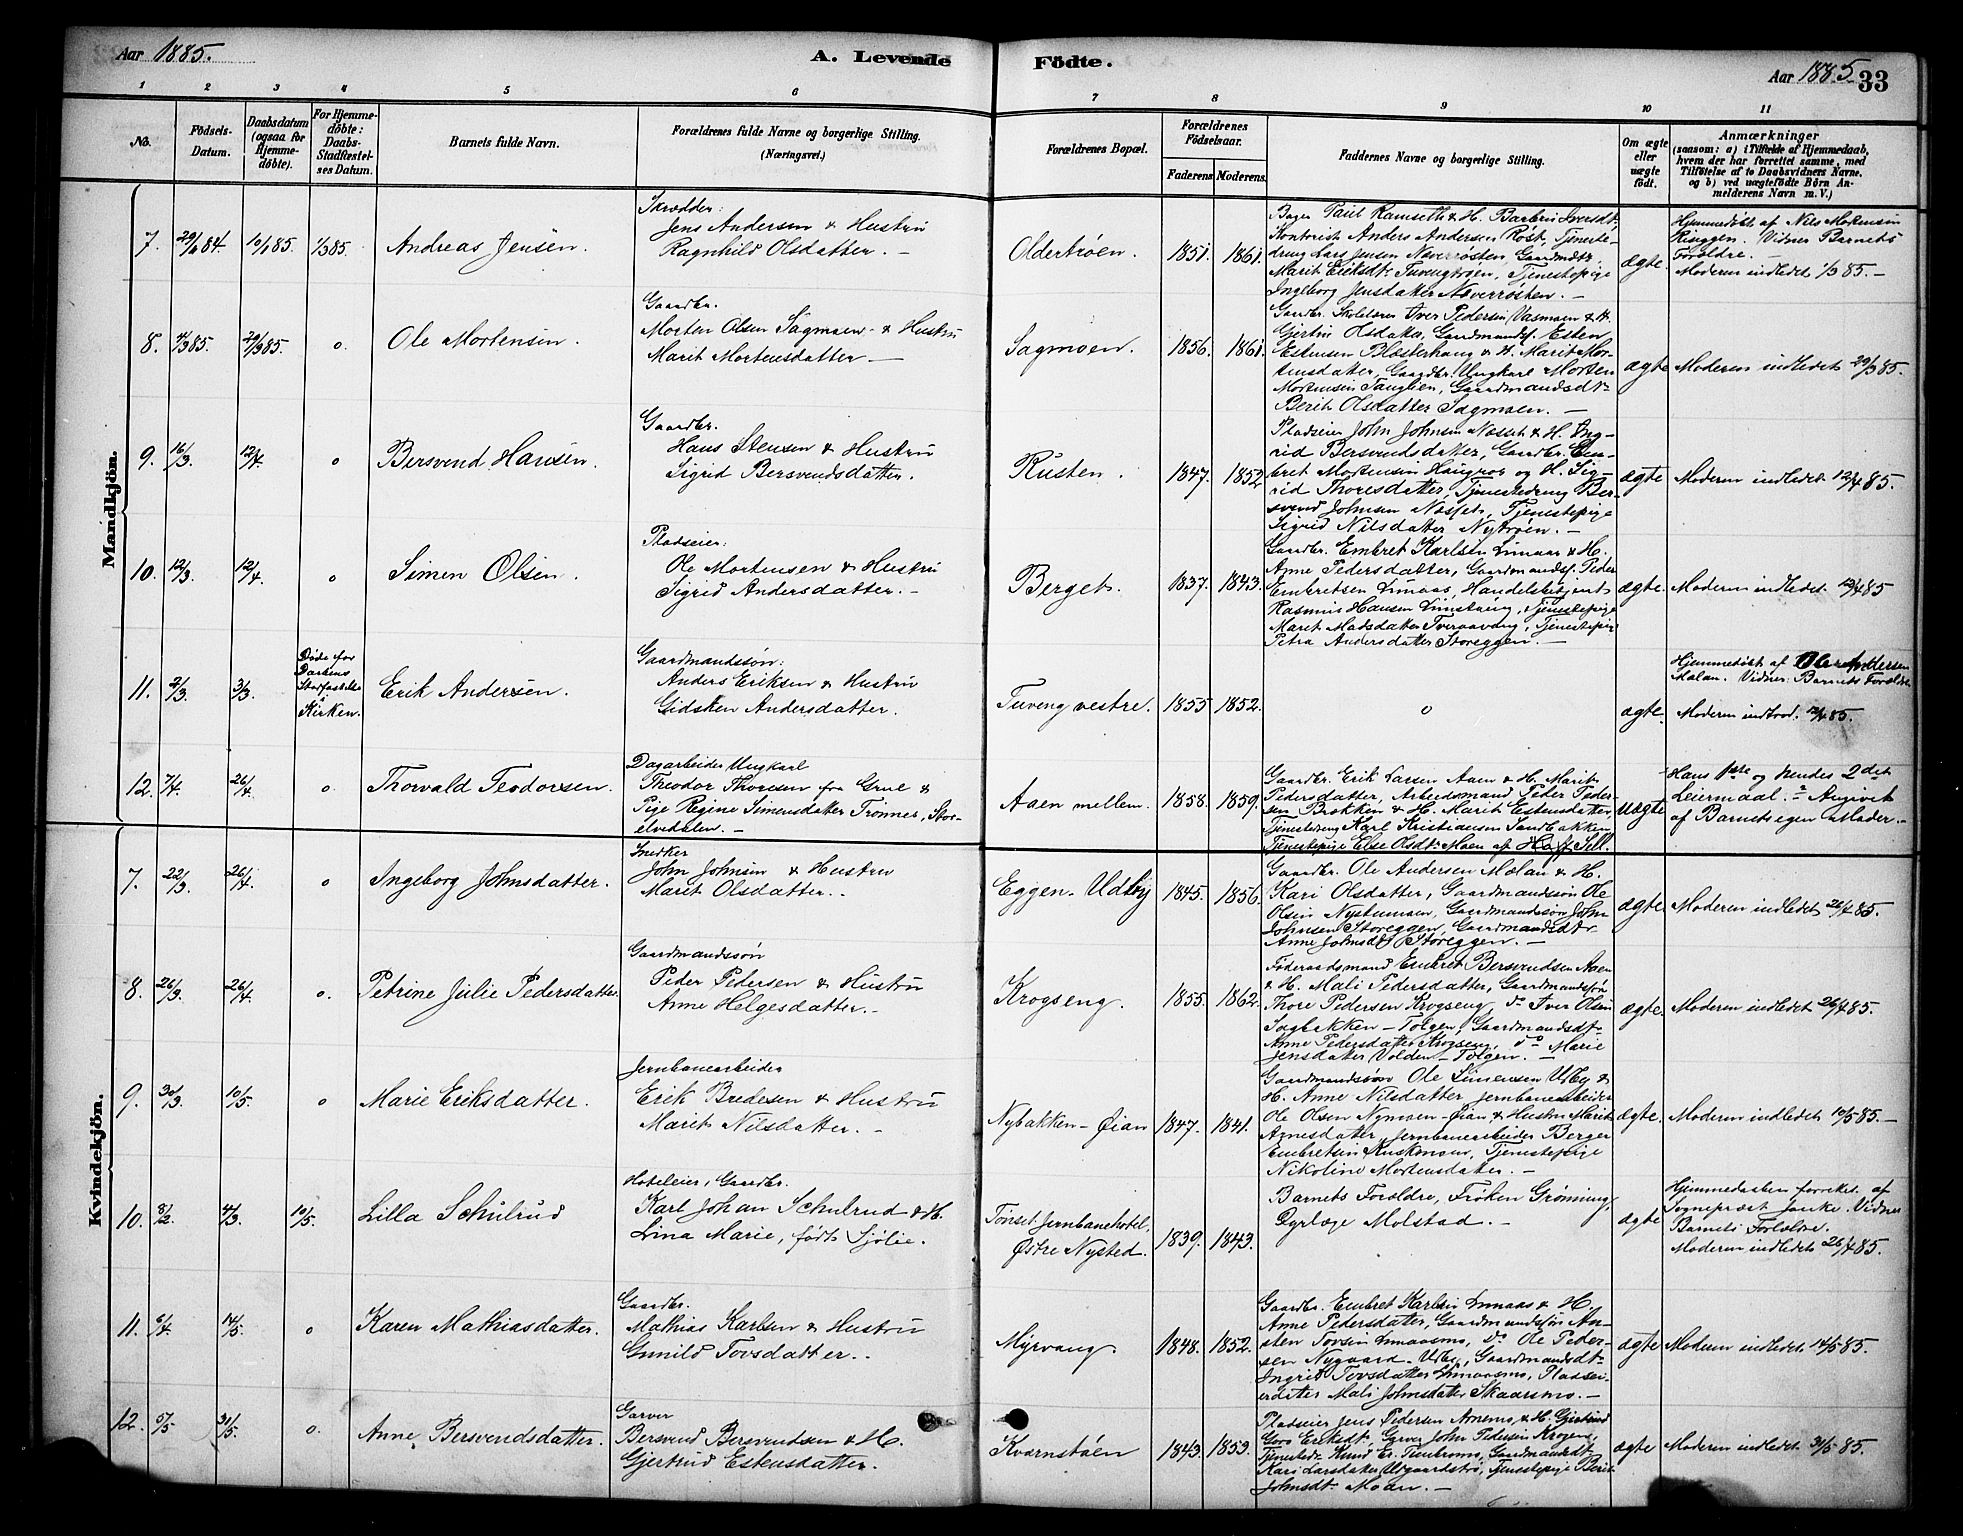 Aar 1885.
A. Levende
Födte.
Aar 1885. 33
1 2 3 4 5 6 7 8 9 10 11
No.
Födsels-Datum.
Daabsdatum (ogsaa for Hjemme-döbte).
For Hjemme-döbte: Daabs-Stadfæstel-ses Datum.
Barnets fulde Navn.
Forældrenes fulde Navne og borgerlige Stilling.
(Næringsvei.)
Forældrenes Bopæl.
Forældrenes Födselsaar.
Faderens. Moderens.
Faddernes Navne og borgerlige Stilling.
Om ægte eller uægte födt.
Anmærkninger
(saasom: a) i Tilfælde af Hjemmedaab, hvem der har forrettet samme, med Tilföielse af to Daabsvidners Navne. og b) ved uægtefödte Börn An-melderens Navn m. V.)
Mandkjön.
7. 29/9 84 10/1 85 1/3 85 Andreas Jensen.
Skrædder:
Jens Andersen & Hustru
Ragnhild Olsdatter. –
Oldertrøen. 1851. 1861.
Bager Paul Ramseth & H. Barbra Iversdt.
Kontorist Anders Andersen Røst, Tjeneste-
dreng Lars Jensen Næverrøsten, Gaardmdt.
Marit Eriksdt. Tuvengtrøen, Tjenestepige
Ingeborg Jensdatter Næverrøsten. –
ægte.
Hjemmedøbt af Nils Mortensen
Ringgen. Vidner Barnets
Forældre. –
Moderen indledet 1/3 85. –
8. 4/3 85. 29/3 85. o. Ole Mortensen.
Gaardbr.
Morten Olsen Sagmoen & Hustru
Marit Mortensdatter. –
Sagmoen. 1856. 1861.
Gaardbr. Skolelærer Iver Pedersen Vasmoen & H.
Gjertru Olsdatter, Gaardmands. Esten
Estensen Blæsterhaug & H. Marit Mor-
tensdatter, Gaardbr. Ungkarl Morten
Mortensen Tanglien, Gaardmandsdt.
Berit Olsdatter Sagmoen. –
ægte Moderen indledet 29/3 85.
9. 16/3 12/4 o Bersvend Hansen.
Gaardbr.
Hans Stensen & Hustru
Sigrid Bersvendsdatter.
Rusten. 1847. 1852
Pladseier John Johnsen Næsset & H. Ing-
rid Bersvendsdatter, Gaardbr. Em-
bret Mortensen Haugros og H. Sig-
rid Thoresdatter, Tjenestedreng Ber-
svend Johnsen Næsset, Tjenestepige
Sigrid Nilsdatter Nytrøen. –
ægte Moderen indledet 12/4 85.
10. 12/3 12/4 o Simen Olsen.
Pladseier:
Ole Mortensen & Hustru
Sigrid Andersdatter. –
Berget. 1837. 1843.
Gaardbr. Embret Karlsen Limaas & H.
Anne Pedersdatter, Gaardmands. Peder
Embretsen Limaas, Handelsbetjent
Rasmus Hansen, Tjenestepige
Marit Madsdatter Tveraavang, Tjenestepig
Petra Andersdatter Storeggen. –
ægte. Moderen indledet 12/4 85
11. 2/3 3/3 Døde før Daabens Stadfæstelse i Kirken. Erik Andersen.
Gaardmandssøn:
Anders Eriksen & Hustru
Gidsken Andersdatter.
Tuveng vestre. 1855 1852. o
ægte.
Hjemmedøbt af Ole Andersen
Mælan. Vidner: Barnets Forældre
Moderen indtraad. 12/4 85.
12. 7/4 26/4 o. Thorvald Teodorsen.
Dagarbeider Ungkarl
Theodor Thoresen fra Grue &
Pige Regine Simensdatter Trønnes, Stor-
elvedalen. –
Aaen mellem. 1858. 1859.
Gaardbr. Erik Larsen Aaen & H. Marit
Pedersdatter, Arbeidsmand Peder Peder-
sen Brokken & H. Marit Estensdatter,
Tjenestedreng Karl Kristiansen Sandbakken
Tjenestepige Else Olsdt. Moen af Hoff Sell.
uægte
Hans 1ste og hendes 2det
Leiermaal. Angivet
af Barnets egen Moder. –
Kvindekjön.
7. 22/3 26/4 o Ingeborg Johnsdatter.
Snedker
John Johnsen & Hustru
Marit Olsdatter.
Eggen. Udby 1845. 1856.
Gaardbr. Ole Andersen Mælan & H.
Kari Olsdatter, Gaardmandssøn Ole
Olsen Nystumoen, Gaardmandssøn John
Johnsen Storeggen, Gaardmandsdtr
Anne Johnsdt. Storeggen. –
ægte. Moderen indledet 26/4 85.
8. 26/3 26/4 o. Petrine Julie Pedersdatter.
Gaardmandssøn
Peder Pedersen & Hustru
Anne Helgesdatter. –
Krogseng. 1855. 1862.
Føderaadsmand Embret Bersvendsen Aaen
& H. Mali Pedersdatter, Gaardmandssøn
Thore Pedersen Krogseng, do Iver Olsen
Sagbakken – Tolgen, Gaardmandsdt.
Anne Pedersdatter Krogseng, do Marie
Jensdatter Volden – Tolgen. –
ægte. Moderen indledet 26/4 85.
9. 30/3 10/5 o Marie Eriksdatter.
Jernbanearbeider
Erik Bredesen & Hustru
Marit Nilsdatter. –
Nybakken – Øian 1847. 1841.
Gaardmandssøn Ole Simensen Udby &
H. Anne Nilsdatter, Jernbanearbeider
Ole Olsen Nymoen – Øian & Hustru Marit
Arnesdatter, Jernbanearbeider Berger
Embretsen, Tjenestepige
Nikoline Mortensdatter. –
ægte. Moderen indledet 10/5 85. –
10. 8/2 4/3 10/5. Lilla Schulrud
Hoteleier, Gaardbr.
Karl Johan Schulrud & H.
Lina Marie, født Sjølie.
Tønset Jernbanehotel.
Østre Nysted. 1839. 1843.
Barnets Forældre, Frøken Grønning,
Dyrlæge Molstad. –
ægte
Hjemmedaaben forrettet af
Sogneprest Janke. Vidner
Barnets Forældre.
Moderen indledet 26/4 85.
11. 6/4 14/5 o Karen Mathiasdatter.
Gaardbr.
Mathias Karlsen & Hustru
Gunild Tovsdatter.
Myrvang. 1848. 1852.
Gaardbr. Embret Karlsen Limaas & H.
Anne Pedersdatter, Gaardmandssøn An-
sten Tovsen Limaasmo, do Ole Peder-
sen Nygaard – Udby, Gaardmandsdt.
Ingrid Tovsdatter Limaasmo, Pladsei-
erdatter Mali Johnsdatter Skaarsmo. –
ægte Moderen indledet 14/5 85.
12. 5/5 31/5. o. Anne Bersvendsdatter.
Garver
Bersvend Bersvendsen & H.
Gjertrud Estensdatter.
Kvernstøen 1843. 1853.
Pladseier Jens Pedersen Arnemo, & H. Gjertrud
Eriksdt. Garver John Pedersen Krogeng,
Tjenestedr. Knud Er. Tunbromo, Gaardmandsdt.
Kari Larsdatter Udgaardstrø, Tjenestepige Berit
Johnsdt. Moen. –
ægte Moderen indledet 31/5 85.